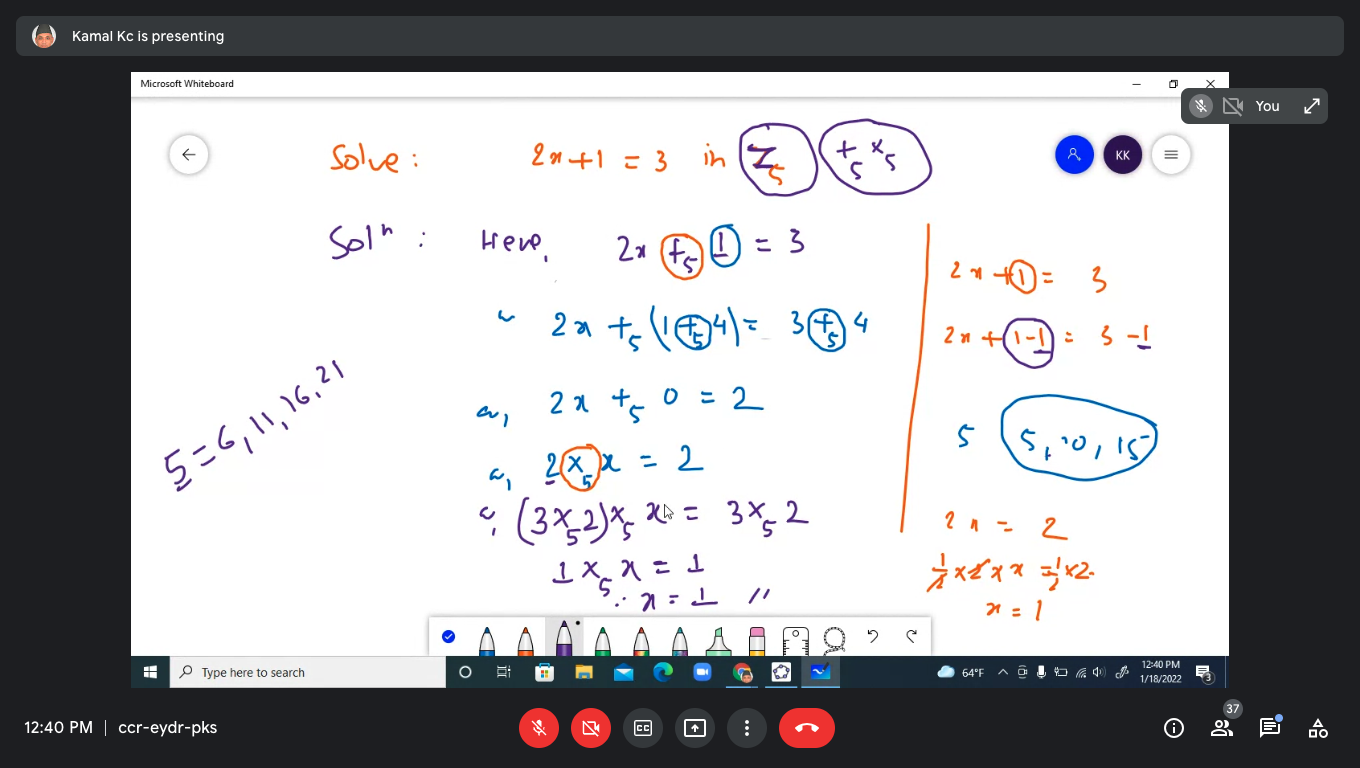 Kamal Kc is presenting
Microsoft Whiteboard
You
KK
Solve : 2x+1 = 3 in Z₅ +₅ ×₅
Solⁿ : Here, 2x +₅ 1 = 3
2x +₅ (1 +₅ 4) = 3 +₅ 4
2x +₅ 0 = 2
2 ×₅ x = 2
(3 ×₅ 2) ×₅ x = 3 ×₅ 2
1 ×₅ x = 1
∴ x = 1 //
5 = 6, 11, 16, 21
2x + 1 = 3
2x + 1 - 1 = 3 - 1
5 5, 10, 15
2x = 2
1/2 × 2 × x = 1/2 × 2
x = 1
Type here to search
64°F
12:40 PM
1/18/2022
3
12:40 PM | ccr-eydr-pks
CC
37